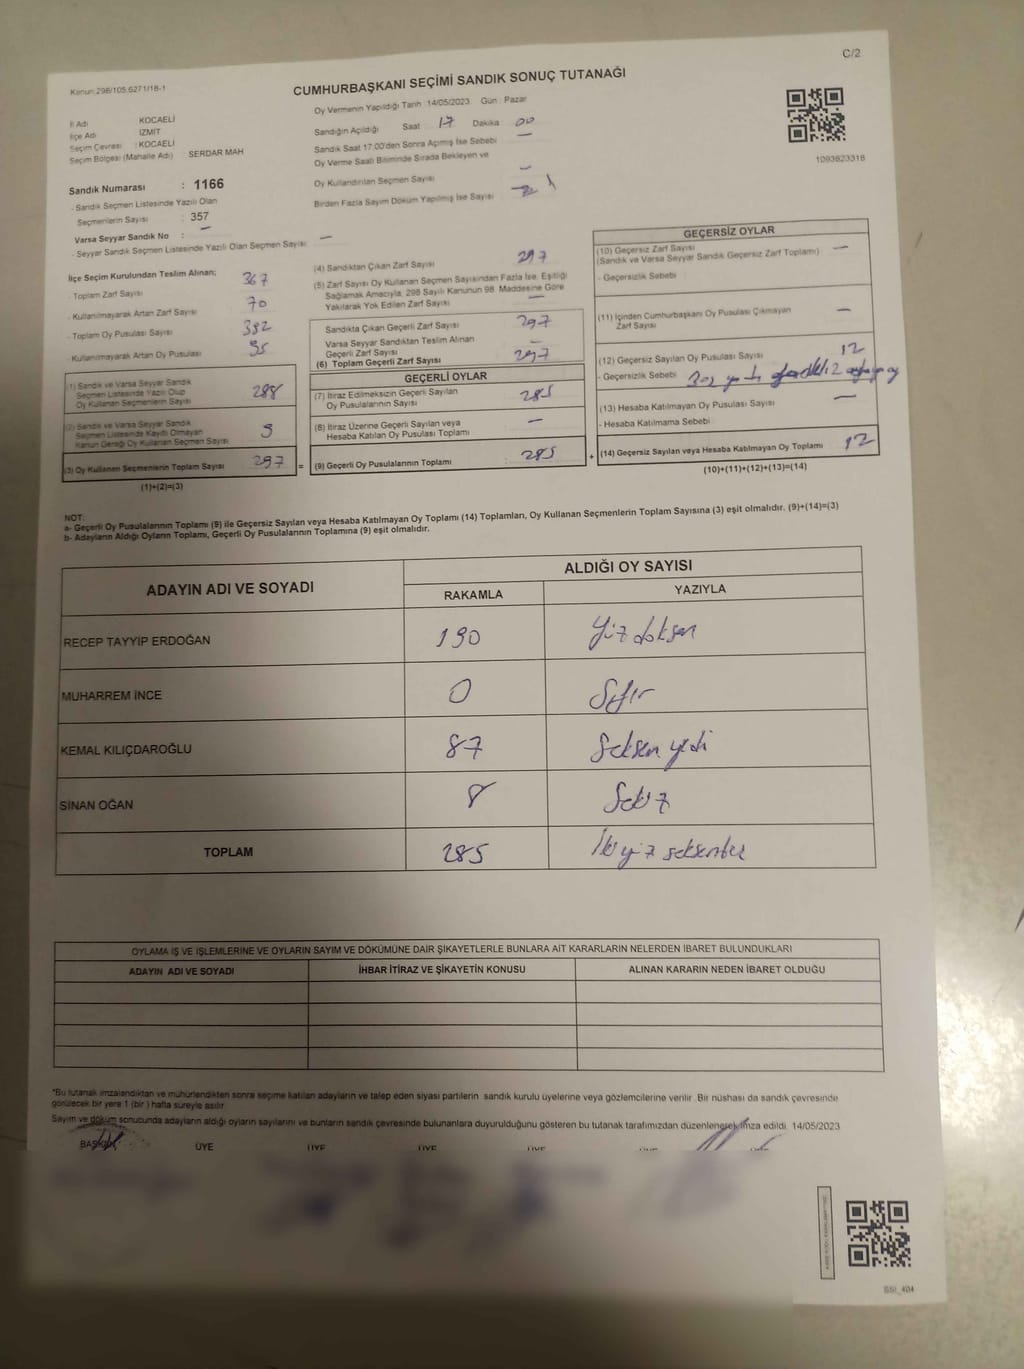 C/2
Kanun: 298/105,6271/18-1
CUMHURBAŞKANI SEÇİMİ SANDIK SONUÇ TUTANAĞI
Oy Vermenin Yapıldığı Tarih :14/05/2023 Gün : Pazar
İl Adı KOCAELİ
İlçe Adı İZMİT
Seçim Çevresi : KOCAELİ
Seçim Bölgesi (Mahalle Adı) SERDAR MAH
Sandığın Açıldığı Saat : 17 Dakika 00
Sandık Saat 17:00'den Sonra Açılmış İse Sebebi —
Oy Verme Saati Bitiminde Sırada Bekleyen ve
Oy Kullandırılan Seçmen Sayısı —
Birden Fazla Sayım Döküm Yapılmış İse Sayısı
1093823318
Sandık Numarası : 1166
- Sandık Seçmen Listesinde Yazılı Olan
Seçmenlerin Sayısı : 357
Varsa Seyyar Sandık No : —
- Seyyar Sandık Seçmen Listesinde Yazılı Olan Seçmen Sayısı: —
İlçe Seçim Kurulundan Teslim Alınan;
- Toplam Zarf Sayısı 367
- Kullanılmayarak Artan Zarf Sayısı 70
- Toplam Oy Pusulası Sayısı 382
- Kullanılmayarak Artan Oy Pusulası
(1) Sandık ve Varsa Seyyar Sandık
Seçmen Listesinde Yazılı Olup
Oy Kullanan Seçmenlerin Sayısı 288
(2) Sandık ve Varsa Seyyar Sandık
Seçmen Listesinde Kaydı Olmayan
Kanun Gereği Oy Kullanan Seçmen Sayısı 9
(3) Oy Kullanan Seçmenlerin Toplam Sayısı 297
(1)+(2)=(3)
(4) Sandıktan Çıkan Zarf Sayısı 297
(5) Zarf Sayısı Oy Kullanan Seçmen Sayısından Fazla İse, Eşitliği
Sağlamak Amacıyla, 298 Sayılı Kanunun 98. Maddesine Göre
Yakılarak Yok Edilen Zarf Sayısı —
Sandıkta Çıkan Geçerli Zarf Sayısı 297
Varsa Seyyar Sandıktan Teslim Alınan
Geçerli Zarf Sayısı —
(6) Toplam Geçerli Zarf Sayısı 297
GEÇERLİ OYLAR
(7) İtiraz Edilmeksizin Geçerli Sayılan
Oy Pusulalarının Sayısı 285
(8) İtiraz Üzerine Geçerli Sayılan veya
Hesaba Katılan Oy Pusulası Toplamı —
= (9) Geçerli Oy Pusulalarının Toplamı : 285
GEÇERSİZ OYLAR
(10) Geçersiz Zarf Sayısı
(Sandık ve Varsa Seyyar Sandık Geçersiz Zarf Toplamı) —
- Geçersizlik Sebebi
(11) İçinden Cumhurbaşkanı Oy Pusulası Çıkmayan
Zarf Sayısı —
(12) Geçersiz Sayılan Oy Pusulası Sayısı 12
- Geçersizlik Sebebi
(13) Hesaba Katılmayan Oy Pusulası Sayısı —
- Hesaba Katılmama Sebebi
+ (14) Geçersiz Sayılan veya Hesaba Katılmayan Oy Toplamı 12
(10)+(11)+(12)+(13)=(14)
NOT:
a- Geçerli Oy Pusulalarının Toplamı (9) ile Geçersiz Sayılan veya Hesaba Katılmayan Oy Toplamı (14) Toplamları, Oy Kullanan Seçmenlerin Toplam Sayısına (3) eşit olmalıdır. (9)+(14)=(3)
b- Adayların Aldığı Oyların Toplamı, Geçerli Oy Pusulalarının Toplamına (9) eşit olmalıdır.
ADAYIN ADI VE SOYADI
ALDIĞI OY SAYISI
RAKAMLA YAZIYLA
RECEP TAYYIP ERDOĞAN 190 Yüz doksan
MUHARREM İNCE 0 Sıfır
KEMAL KILIÇDAROĞLU 87 Seksen yedi
SİNAN OĞAN 8 Sekiz
TOPLAM 285 İki yüz seksenbeş
OYLAMA İŞ VE İŞLEMLERİNE VE OYLARIN SAYIM VE DÖKÜMÜNE DAİR ŞİKAYETLERLE BUNLARA AİT KARARLARIN NELERDEN İBARET BULUNDUKLARI
ADAYIN ADI VE SOYADI İHBAR İTİRAZ VE ŞİKAYETİN KONUSU ALINAN KARARIN NEDEN İBARET OLDUĞU
*Bu tutanak imzalandıktan ve mühürlendikten sonra seçime katılan adayların ve talep eden siyasi partilerin sandık kurulu üyelerine veya gözlemcilerine verilir. Bir nüshası da sandık çevresinde
görülecek bir yere 1 (bir ) hafta süreyle asılır.
Sayım ve döküm sonucunda adayların aldığı oyların sayılarını ve bunların sandık çevresinde bulunanlara duyurulduğunu gösteren bu tutanak tarafımızdan düzenlenerek imza edildi. 14/05/2023
BAŞKAN ÜYE ÜYE ÜYE ÜYE